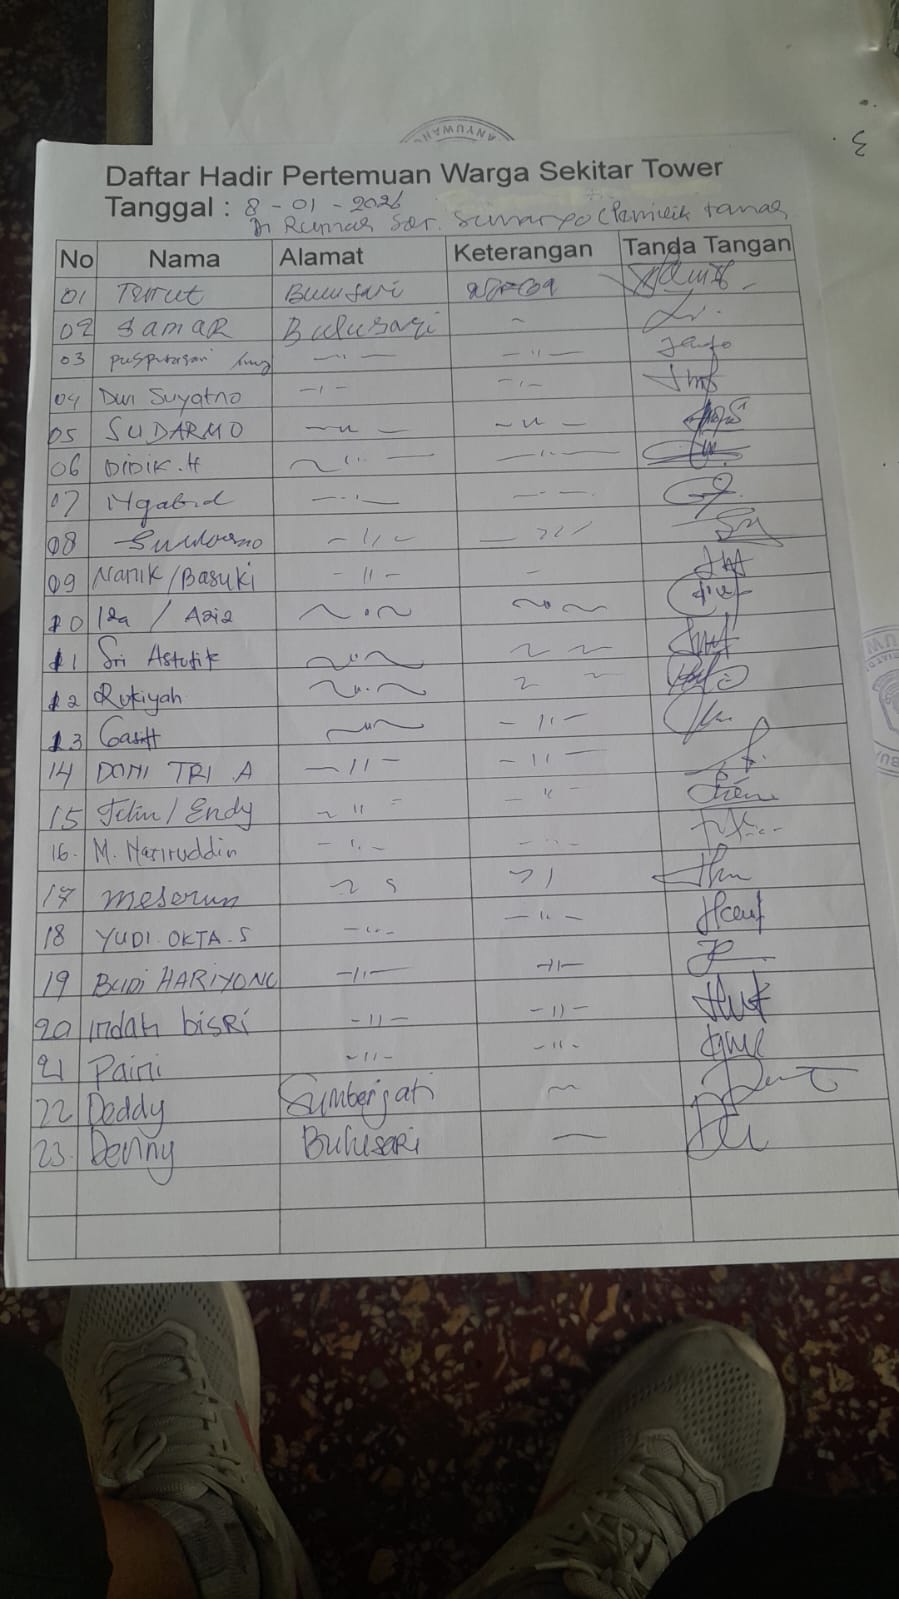 Daftar Hadir Pertemuan Warga Sekitar Tower
Tanggal : 8 - 01 - 2026
Di Rumah Sdr. Sunaryo (Pemilik tanah
No Nama Alamat Keterangan Tanda Tangan
01 Bulusari
02 SAMAR Bulusari
03 puspitasari
04 Dwi Suyatno
05 SUDARMO
06 DIDIK.H
07 Ngabid
08
09 Nanik/Basuki
10 Iza / Aziz
11 Sri Astutik
12 Rukiyah
13
14 DONI TRI A
15 / Endy
16. M. Nasiruddin
17 meserun
18 YUDI OKTA.S
19 BUDI HARIYONO
20 indah bisri
21 Paini
22 Deddy Sumberjati
23. Denny Bulusari